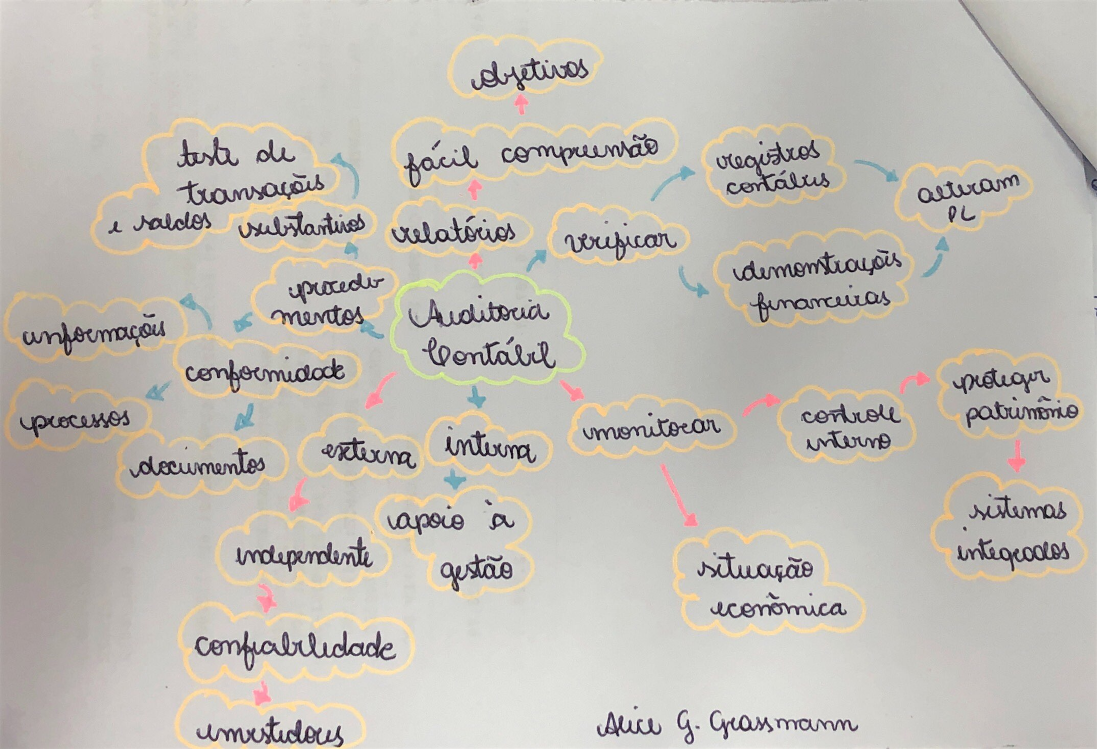 objetivos
fácil compreensão
relatórios
teste de
transações
e saldos
substantivos
procedi-
mentos
Auditoria
Contábil
verificar
registros
contábeis
alteram
PL
demonstrações
financeiras
informações
conformidade
processos
documentos
externa
interna
monitorar
controle
interno
proteger
patrimônio
sistemas
integrados
apoio à
gestão
independente
situação
econômica
confiabilidade
investidores
Alice G. Grassmann